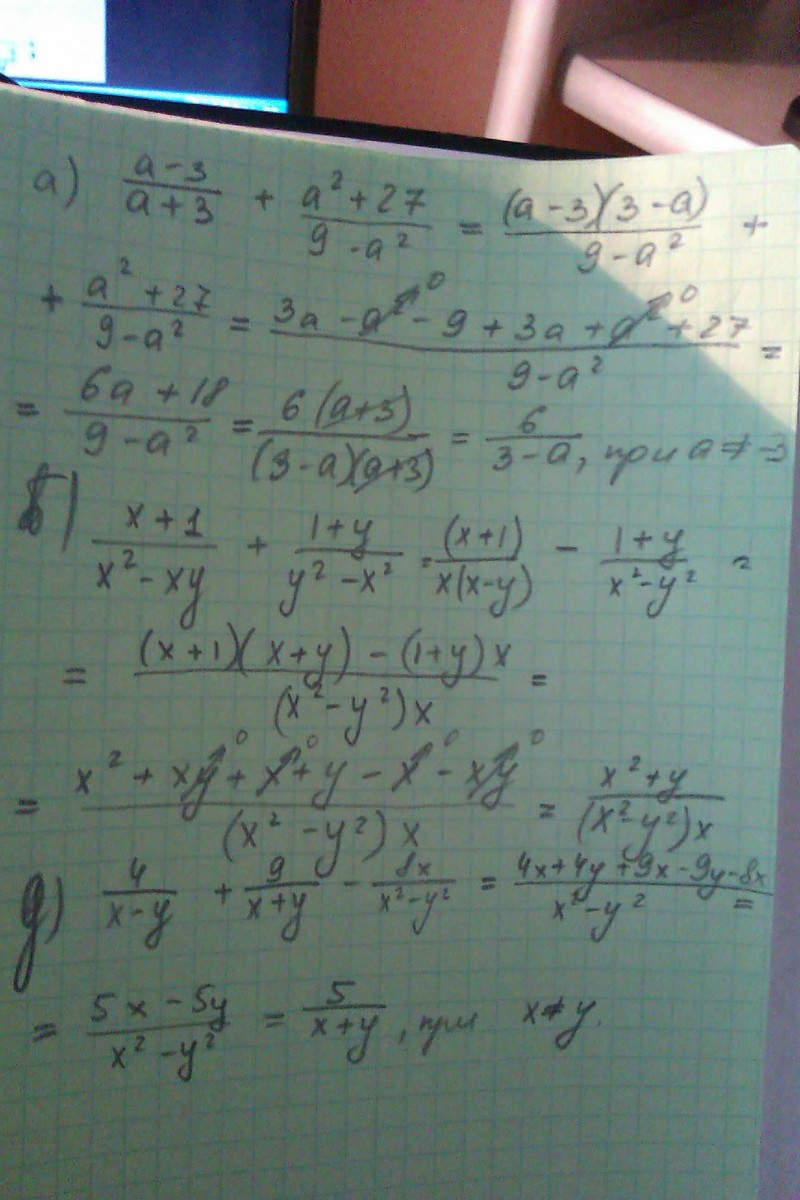 а) (a-3)/(a+3) + (a²+27)/(9-a²) = (a-3)(3-a)/(9-a²) +
+ (a²+27)/(9-a²) = (3a-a²-9+3a+a²+27)/(9-a²) =
= (6a+18)/(9-a²) = 6(a+3)/((3-a)(a+3)) = 6/(3-a), при a≠-3
б) (x+1)/(x²-xy) + (1+y)/(y²-x²) = (x+1)/(x(x-y)) - (1+y)/(x²-y²) =
= ((x+1)(x+y)-(1+y)x)/((x²-y²)x) =
= (x²+xy+x+y-x-xy)/((x²-y²)x) = (x²+y)/((x²-y²)x)
д) 4/(x-y) + 9/(x+y) - 8x/(x²-y²) = (4x+4y+9x-9y-8x)/(x²-y²) =
= (5x-5y)/(x²-y²) = 5/(x+y), при x≠y.